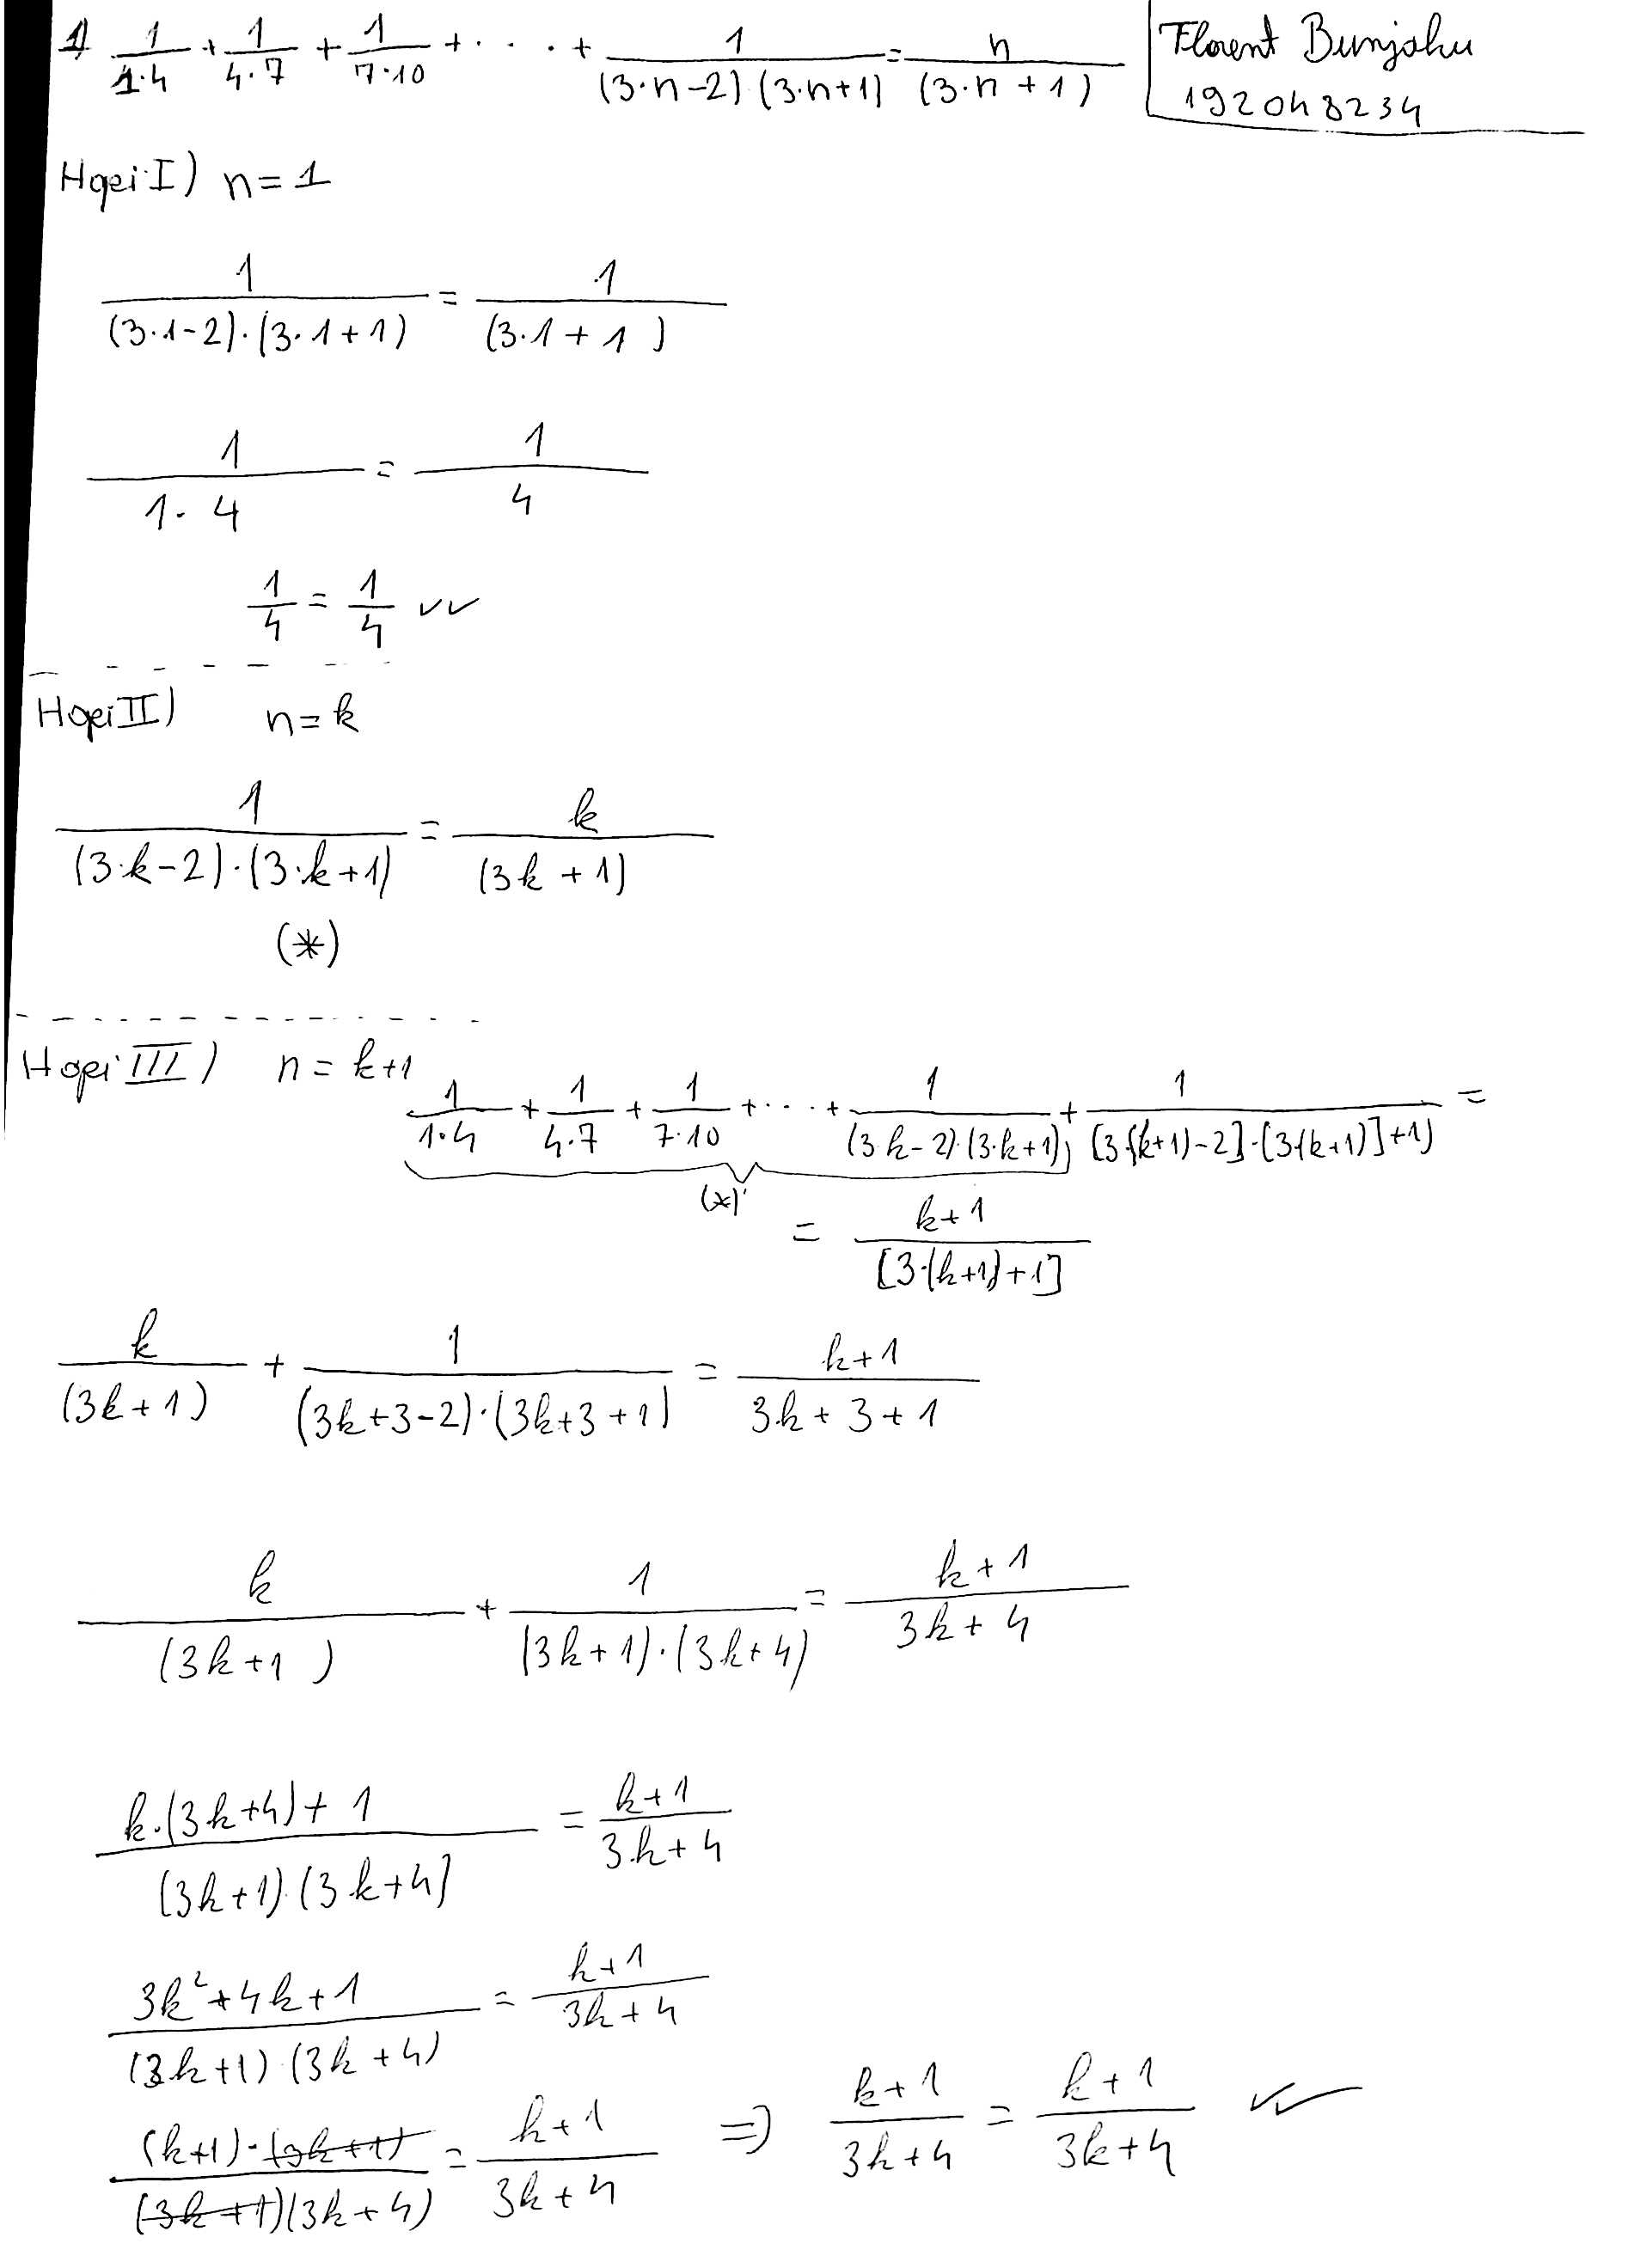 1) 1/(1·4) + 1/(4·7) + 1/(7·10) + · · · + 1/((3·n-2)·(3·n+1)) = n/(3·n+1)
Florent Bunjaku
192048234
Hapi I) n=1
1/((3·1-2)·(3·1+1)) = 1/(3·1+1)
1/(1·4) = 1/4
1/4 = 1/4 ✓✓
Hapi II) n=k
1/((3·k-2)·(3·k+1)) = k/(3k+1)
(*)
Hapi III) n=k+1
1/(1·4) + 1/(4·7) + 1/(7·10) + ···· + 1/((3·k-2)·(3·k+1)) + 1/([3·(k+1)-2]·[3(k+1)]+1) =
(*)
= (k+1)/[3·(k+1)+1]
k/(3k+1) + 1/((3k+3-2)·(3k+3+1)) = (k+1)/(3k+3+1)
k/(3k+1) + 1/((3k+1)·(3k+4)) = (k+1)/(3k+4)
(k·(3k+4)+1)/((3k+1)·(3k+4)) = (k+1)/(3k+4)
(3k²+4k+1)/((3k+1)·(3k+4)) = (k+1)/(3k+4)
((k+1)·(3k+1))/((3k+1)(3k+4)) = (k+1)/(3k+4) ⇒ (k+1)/(3k+4) = (k+1)/(3k+4) ✓✓